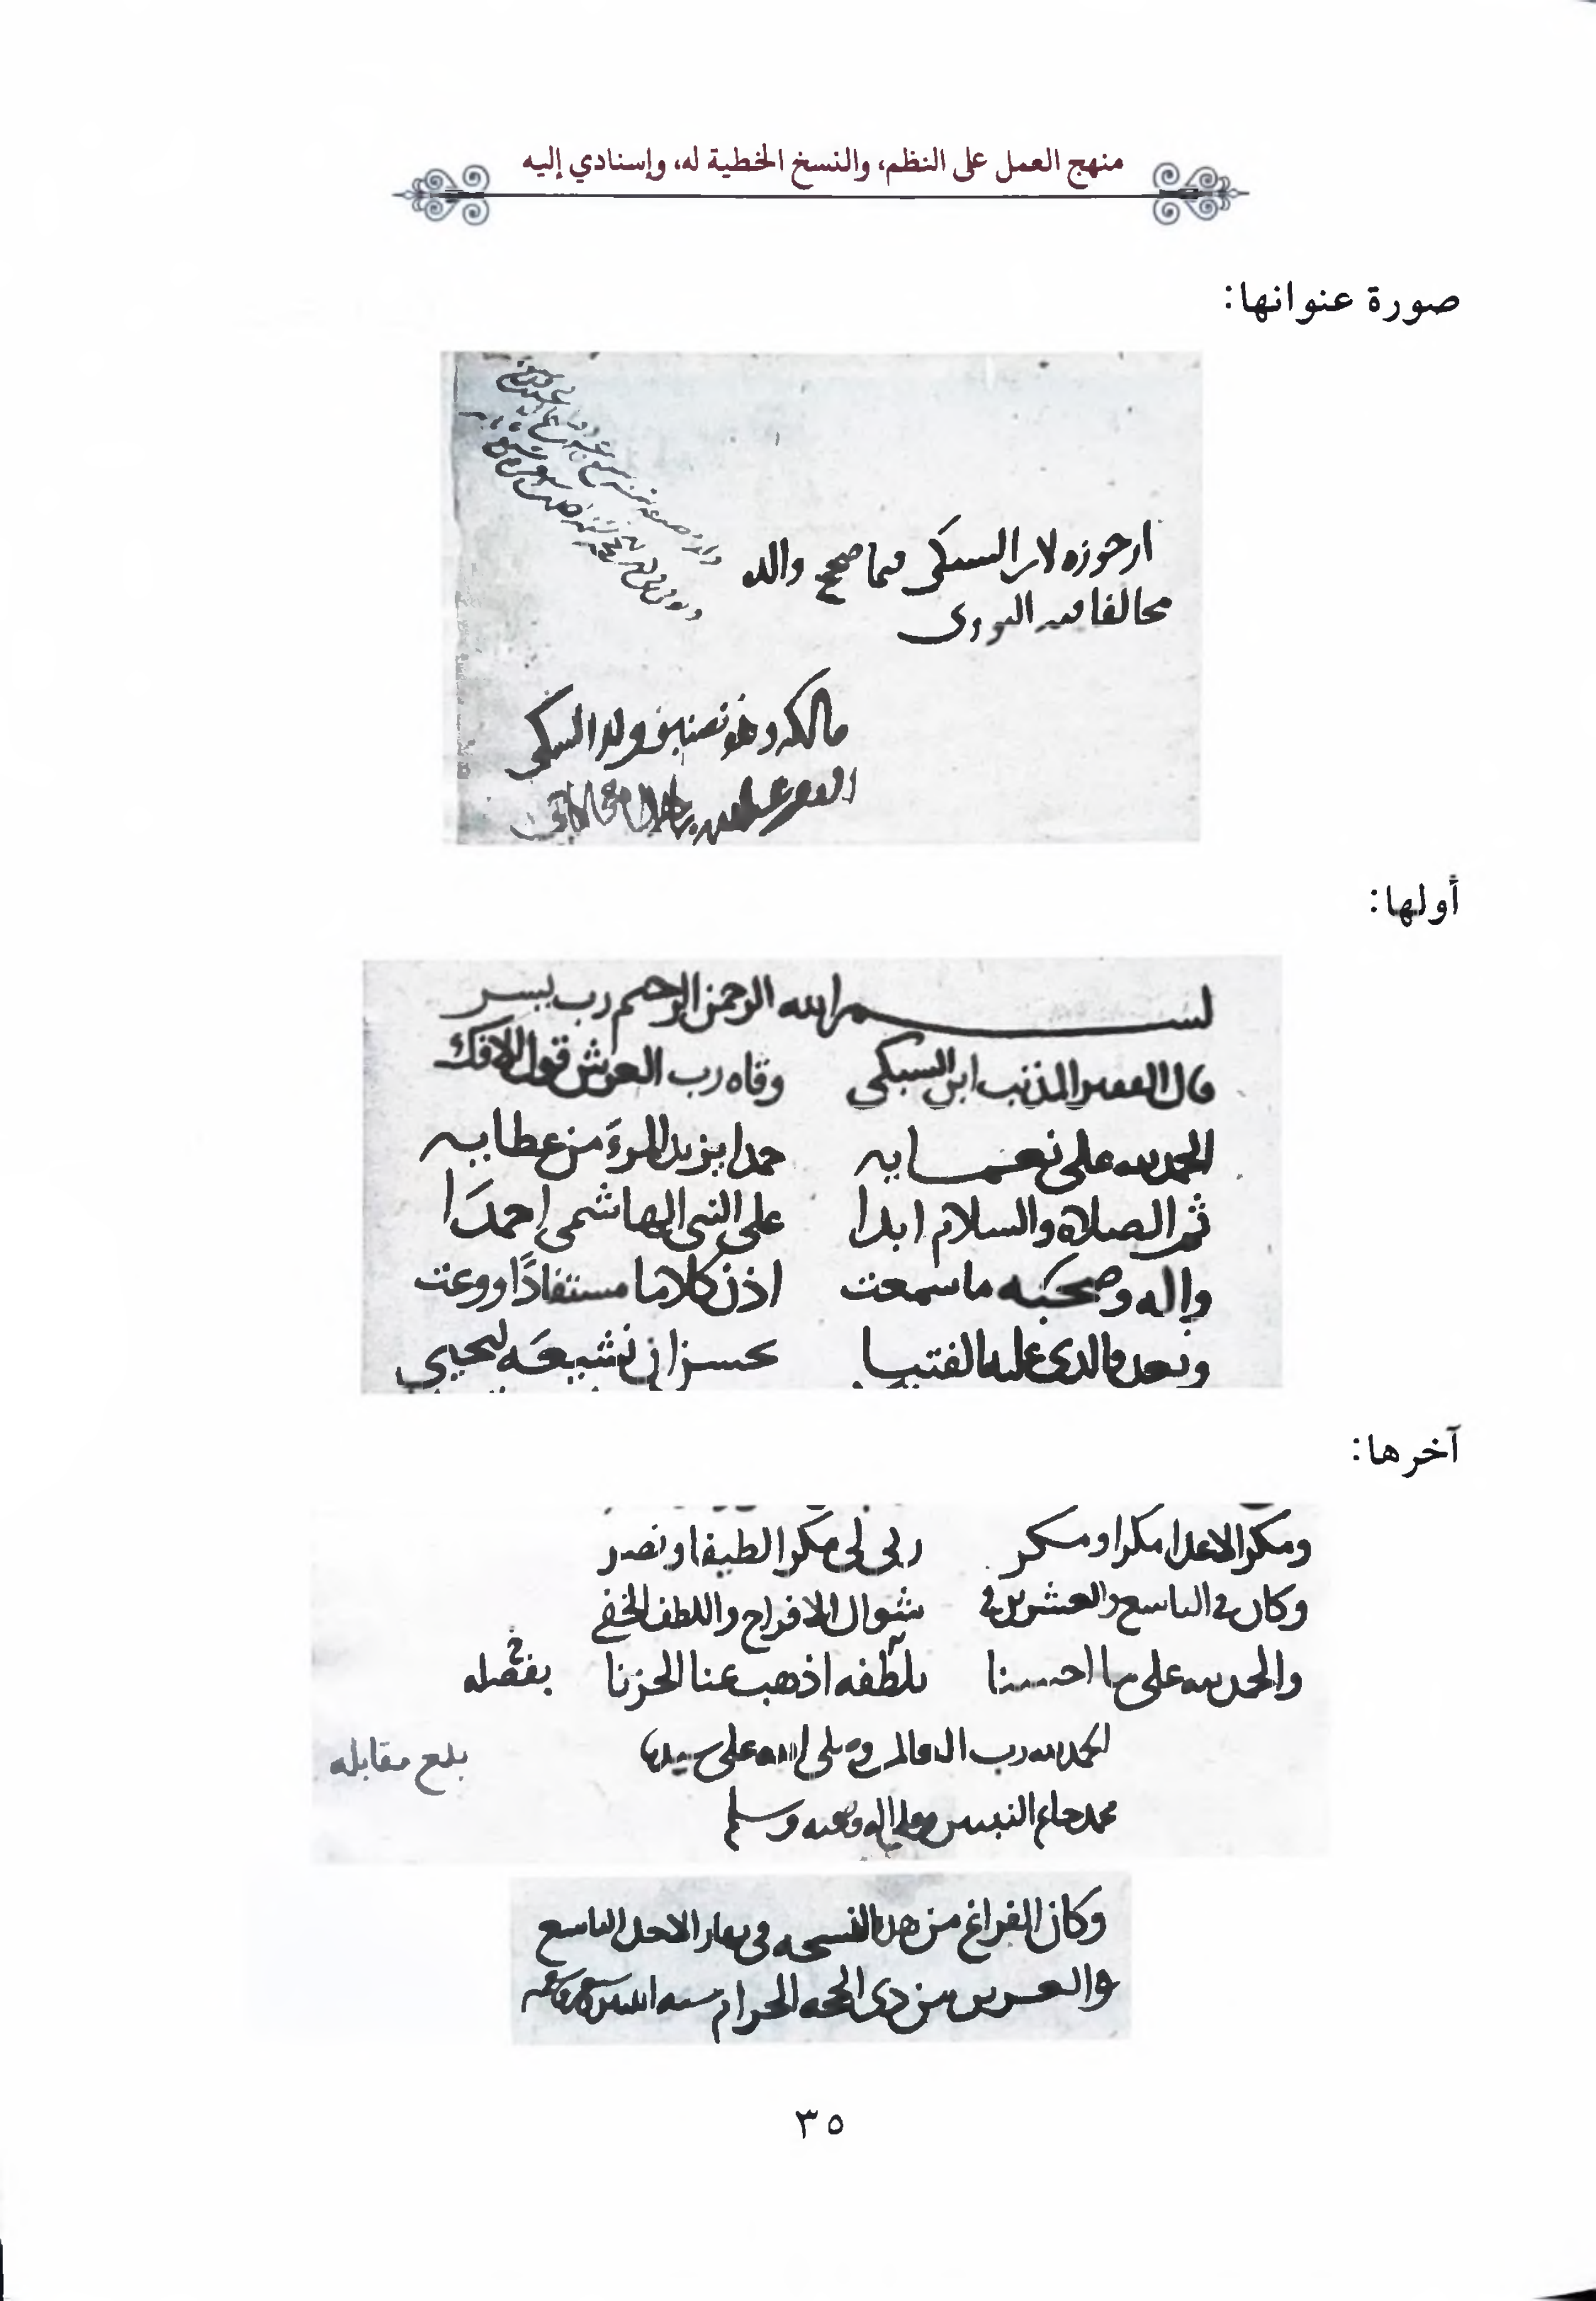 منهج العمل على النظم، والنسخ الخطية له، وإسنادي إليه
صورة عنوانها:
ارجوزه لابن السبكى فيما صحح والده
مخالفا فيه النووى
مالكه وهو تصنيف ولد السبكى
الفقير
أولها:
بسم الله الرحمن الرحيم رب يسر
قال الفقير المذنب ابن السبكي وقاه رب العرش قول الافك
الحمد لله على نعمايه حمدا يزيد المرءَ من عطايه
ثم الصلاه والسلام ابدا على النبي الهاشمي احمدَا
واله وصحبه ما سمعت اذن كلاما مستفادًا ووعت
وبعد فالذي عليه الفتيا بحسن ان نشيعَه ليحيى
آخرها:
ومكر الاعدا مكرا ومكر ربي لي مكرا لطيفا ونصر
وكان في التاسع والعشرين في شوال الافراح واللطف الخفي
والحمد لله على ما احسنا بلطفه اذهب عنا الحزنا بفضله
الحمد لله رب العالمين وصلى الله على سيدنا
بلغ مقابله
محمد خاتم النبيين وعلى اله وصحبه وسلم
وكان الفراغ من هذه النسخه في نهار الاحد التاسع
والعشرين من ذي الحجه الحرام سنه
٣٥